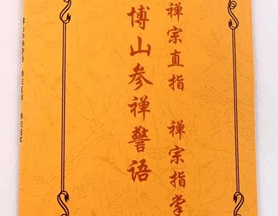 禅宗直指 禅宗指掌
博山参禅警语